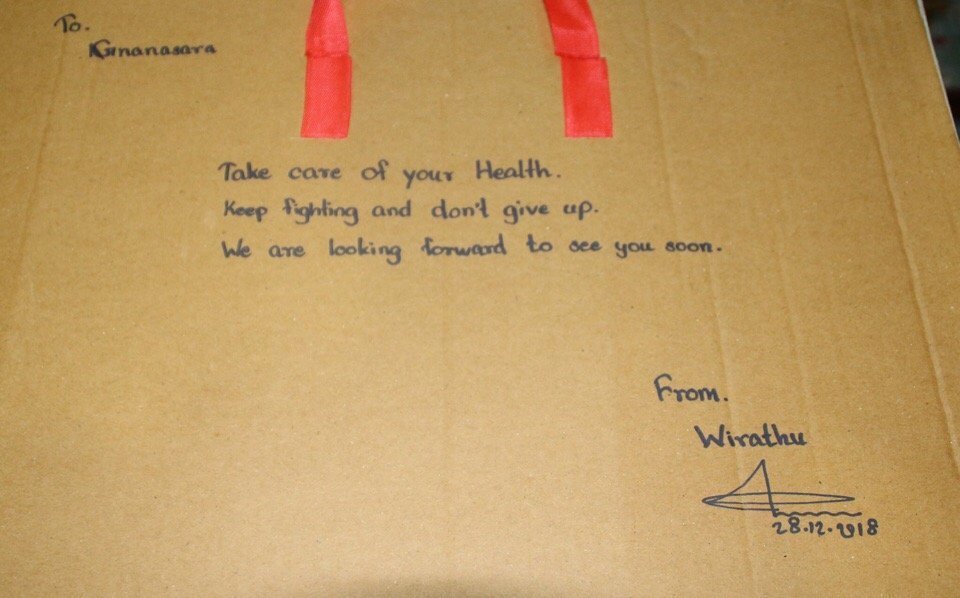 To.
Gnanasara
Take care of your Health.
Keep fighting and don't give up.
We are looking forward to see you soon.
From.
Wirathu
28.12.2018